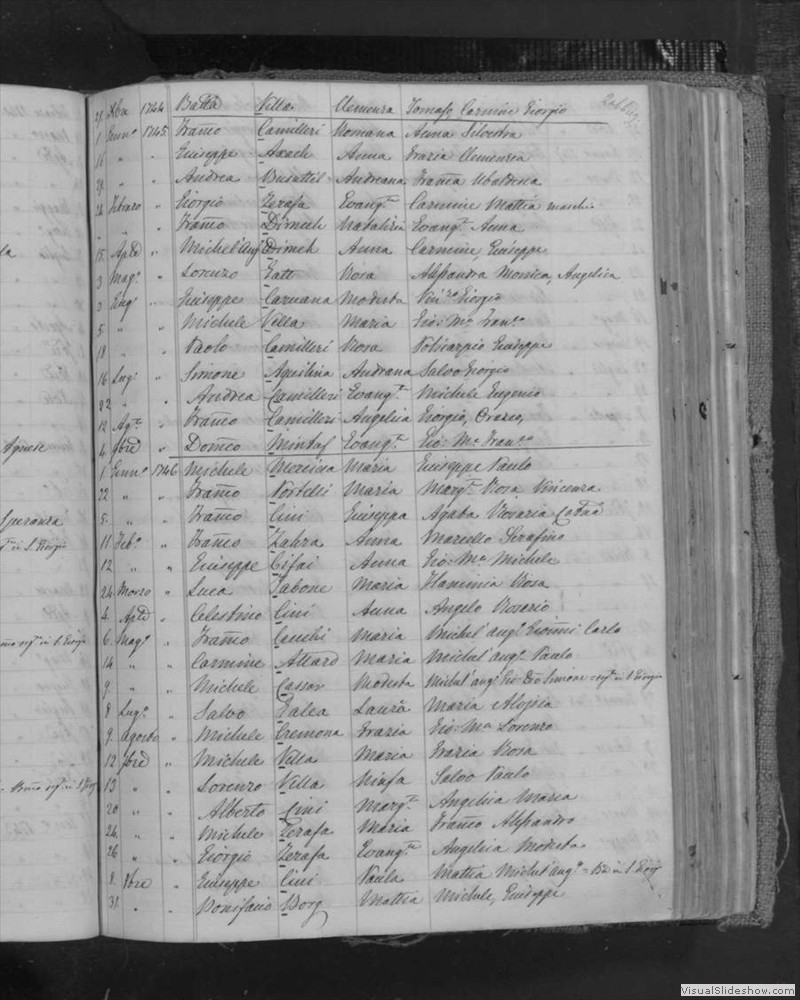 Rabbu.
28 Xbre 1744 Batta Villa Clemenza Tomaso Carmine Giorgio
1 Genn.o 1745 Franco Camilleri Romana Anna Silvestra
16 " " Giuseppe Axach Anna Grazia Clemenzia
" " Andrea Busuttil Andreana Franca Ubaldesca
24 Febraro " Giorgio Zerafa Evang.ta Carmine Mattia
" " Franco Dimech Evang.ta Anna
15 Aple " Michel'Ang Dimech Anna Carmine Giuseppe
3 Mag.o " Lorenzo Gatt Rosa Alessandra Monica, Angelica
3 Giug.o " Giuseppe Caruana Modesta Vin.zo Giorgio
5 " " Michele Villa Maria Gio: Ma Fran.co
18 " Paolo Camilleri Rosa Policarpio Giuseppe
16 Lug.o " Simone Aquilina Andreana Salvo Giorgio
22 " Andrea Camilleri Evang.ta Michele Eugenio
12 Ag.to " Franco Camilleri Angelica Giorgio, Orazio,
4 9bre " Domco Mintof Evang.ta Gio: Ma Fran.co
1 Genn.o 1746 Michele Mezzina Maria Giuseppe Paulo
22 " " Franco Portelli Maria Marg.ta Rosa Vincenza
5 " " Franco Cini Giuseppa Agata Vittoria Catna
11 Feb.o " Franco Zahra Anna Marcello Serafino
12 " " Giuseppe Cifai Anna Gio: Ma Michele
24 Marzo " Luca Tabone Maria Flaminia Rosa
4 Aple " Celestino Cini Anna Angelo Rosario
6 Mag.o " Franco Cauchi Maria Michel'ang.o Gioanni Carlo
14 " " Carmine Attard Maria Michel'ang.o Paulo
9 " " Michele Cassar Modesta Michel'ang.o Gio: Bta Simone = sep.to in S. Giorgio
8 Lug.o " Salvo Galea Laura Maria Aloisia
9 Agosto " Michele Cremona Grazia Gio: Ma Lorenzo
12 7bre " Michele Villa Maria Grazia Rosa
13 " " Lorenzo Villa Ninfa Salvo Paulo
20 " " Alberto Cini Marg.ta Angelica Maria
26 " " Michele Zerafa Maria Franco Alessandro
26 " " Giorgio Zerafa Evang.ta Angelica Modesta
8 8bre " Giuseppe Cini Paula Mattia Michel'ang.o = in S. Giorg
31 " " Bonifacio Borg Mattia Michele, Giuseppe
Agnese
Speranza
VisualSlideshow.com